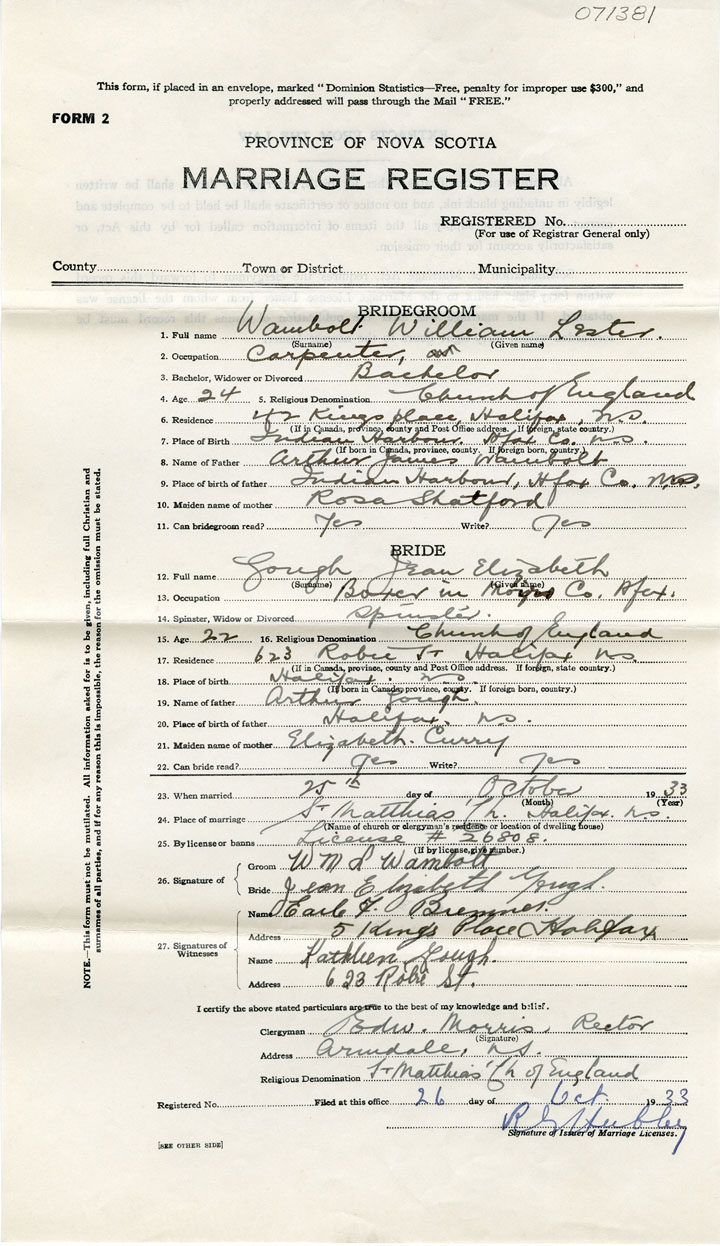 071381
This form, if placed in an envelope, marked "Dominion Statistics—Free, penalty for improper use $300," and
properly addressed will pass through the Mail "FREE."
FORM 2
PROVINCE OF NOVA SCOTIA
MARRIAGE REGISTER
REGISTERED No.
(For use of Registrar General only)
County Town or District Municipality
BRIDEGROOM
1. Full name Wambolt William Lester.
(Surname) (Given name)
2. Occupation Carpenter,
3. Bachelor, Widower or Divorced Bachelor
4. Age 24 5. Religious Denomination Church of England
6. Residence 42 Kings place, Halifax, N.S.
(If in Canada, province, county and Post Office address. If foreign, state country.)
7. Place of Birth Indian Harbour, Hfax Co. N.S.
(If born in Canada, province, county. If foreign born, country.)
8. Name of Father Arthur James Wambolt
9. Place of birth of father Indian Harbour, Hfax Co. N.S.
10. Maiden name of mother Rosa Shatford
11. Can bridegroom read? Yes Write? Yes
BRIDE
12. Full name Gough Jean Elizabeth
(Surname) (Given name)
13. Occupation Boxer in Moirs Co. Hfax.
14. Spinster, Widow or Divorced Spinster.
15. Age 22 16. Religious Denomination Church of England
17. Residence 623 Robie St Halifax N.S.
(If in Canada, province, county and Post Office address. If foreign, state country.)
18. Place of birth Halifax. N.S.
(If born in Canada, province, county. If foreign born, country.)
19. Name of father Arthur Gough.
20. Place of birth of father Halifax, N.S.
21. Maiden name of mother Elizabeth Curry
22. Can bride read? Yes Write? Yes
23. When married 25th day of October 1933
(Month) (Year)
24. Place of marriage St Matthias' Ch. Halifax. N.S.
(Name of church or clergyman's residence or location of dwelling house)
25. By license or banns License # 26808.
(If by license, give number.)
26. Signature of
Groom Wm L Wambolt
Bride Jean Elizabeth Gough.
27. Signatures of Witnesses
Name Earle F. Bremner
Address 5 Kings Place Halifax
Name Kathleen Gough.
Address 623 Robie St.
I certify the above stated particulars are true to the best of my knowledge and belief.
Clergyman Edw. Morris, Rector
(Signature)
Address Armdale, N.S.
Religious Denomination St Matthias' Ch of England
Registered No. Filed at this office 26 day of Oct 1933
Signature of Issuer of Marriage Licenses.
[SEE OTHER SIDE]
NOTE.—This form must not be mutilated. All information asked for is to be given, including full Christian and
surnames of all parties, and if for any reason this is impossible, the reason for the omission must be stated.